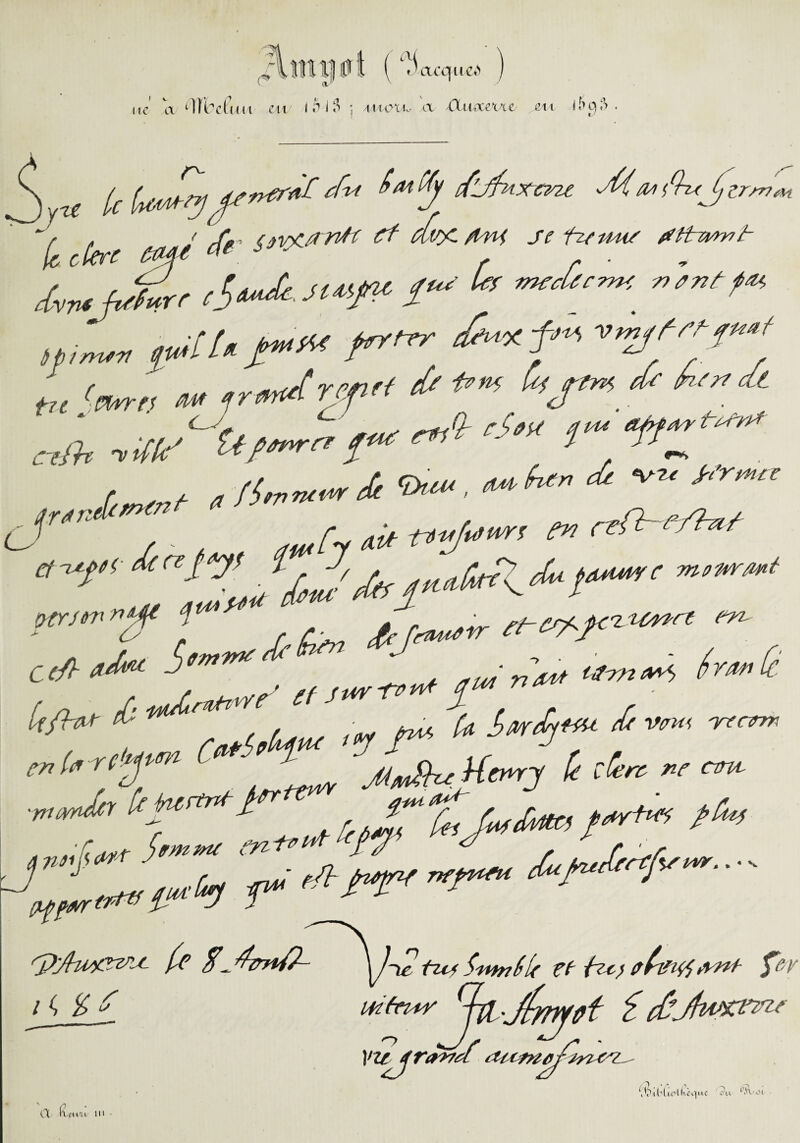 Amyot (Jacques)
né à Melun en 1513; mort à Auxerre en 1593.
Syre le lieuten̄ general du bailly d'Auxerre Maistre Germain
le clerc eagé de soixante et dix ans se treuue attaint
dune fiebure chaude siaspre que les medecins nont pas
opinion quil la puisse porter deux fois vingt et quat
tre heures au grand regret de tous les gens de bien de
ceste ville Et pource que cest chose qui appartient
grandement a lhonneur de Dieu, au bien de vr̄e seruice
et repos de ce pays quil y ait tousiours en cest estat
personnage qui soit doué des qualitez du pauure mourant
Cest adire homme de bien de scauoir et experience en
lestat de iudicature et sur tout qui nait iamais branlé
en la religion Catholique iay pris la hardyesse de vous recom
mander le present porteur Maistre Henry le clerc ne cou
gnoissant homme en tout le pays qui ait les susdittes parties plus
apparentes que luy qui est propre nepueu du predecesseur....
D'Auxerre le 8. Aoust
1586
Vr̄e tres humble et tres obeissant ser
uiteur Ja. Amyot E d'Auxerre
vr̄e grand aumosnier
Bibliothèque du Roi.
A henri III.